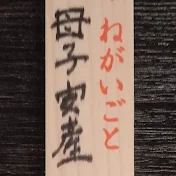 ねがいごと
母子安産